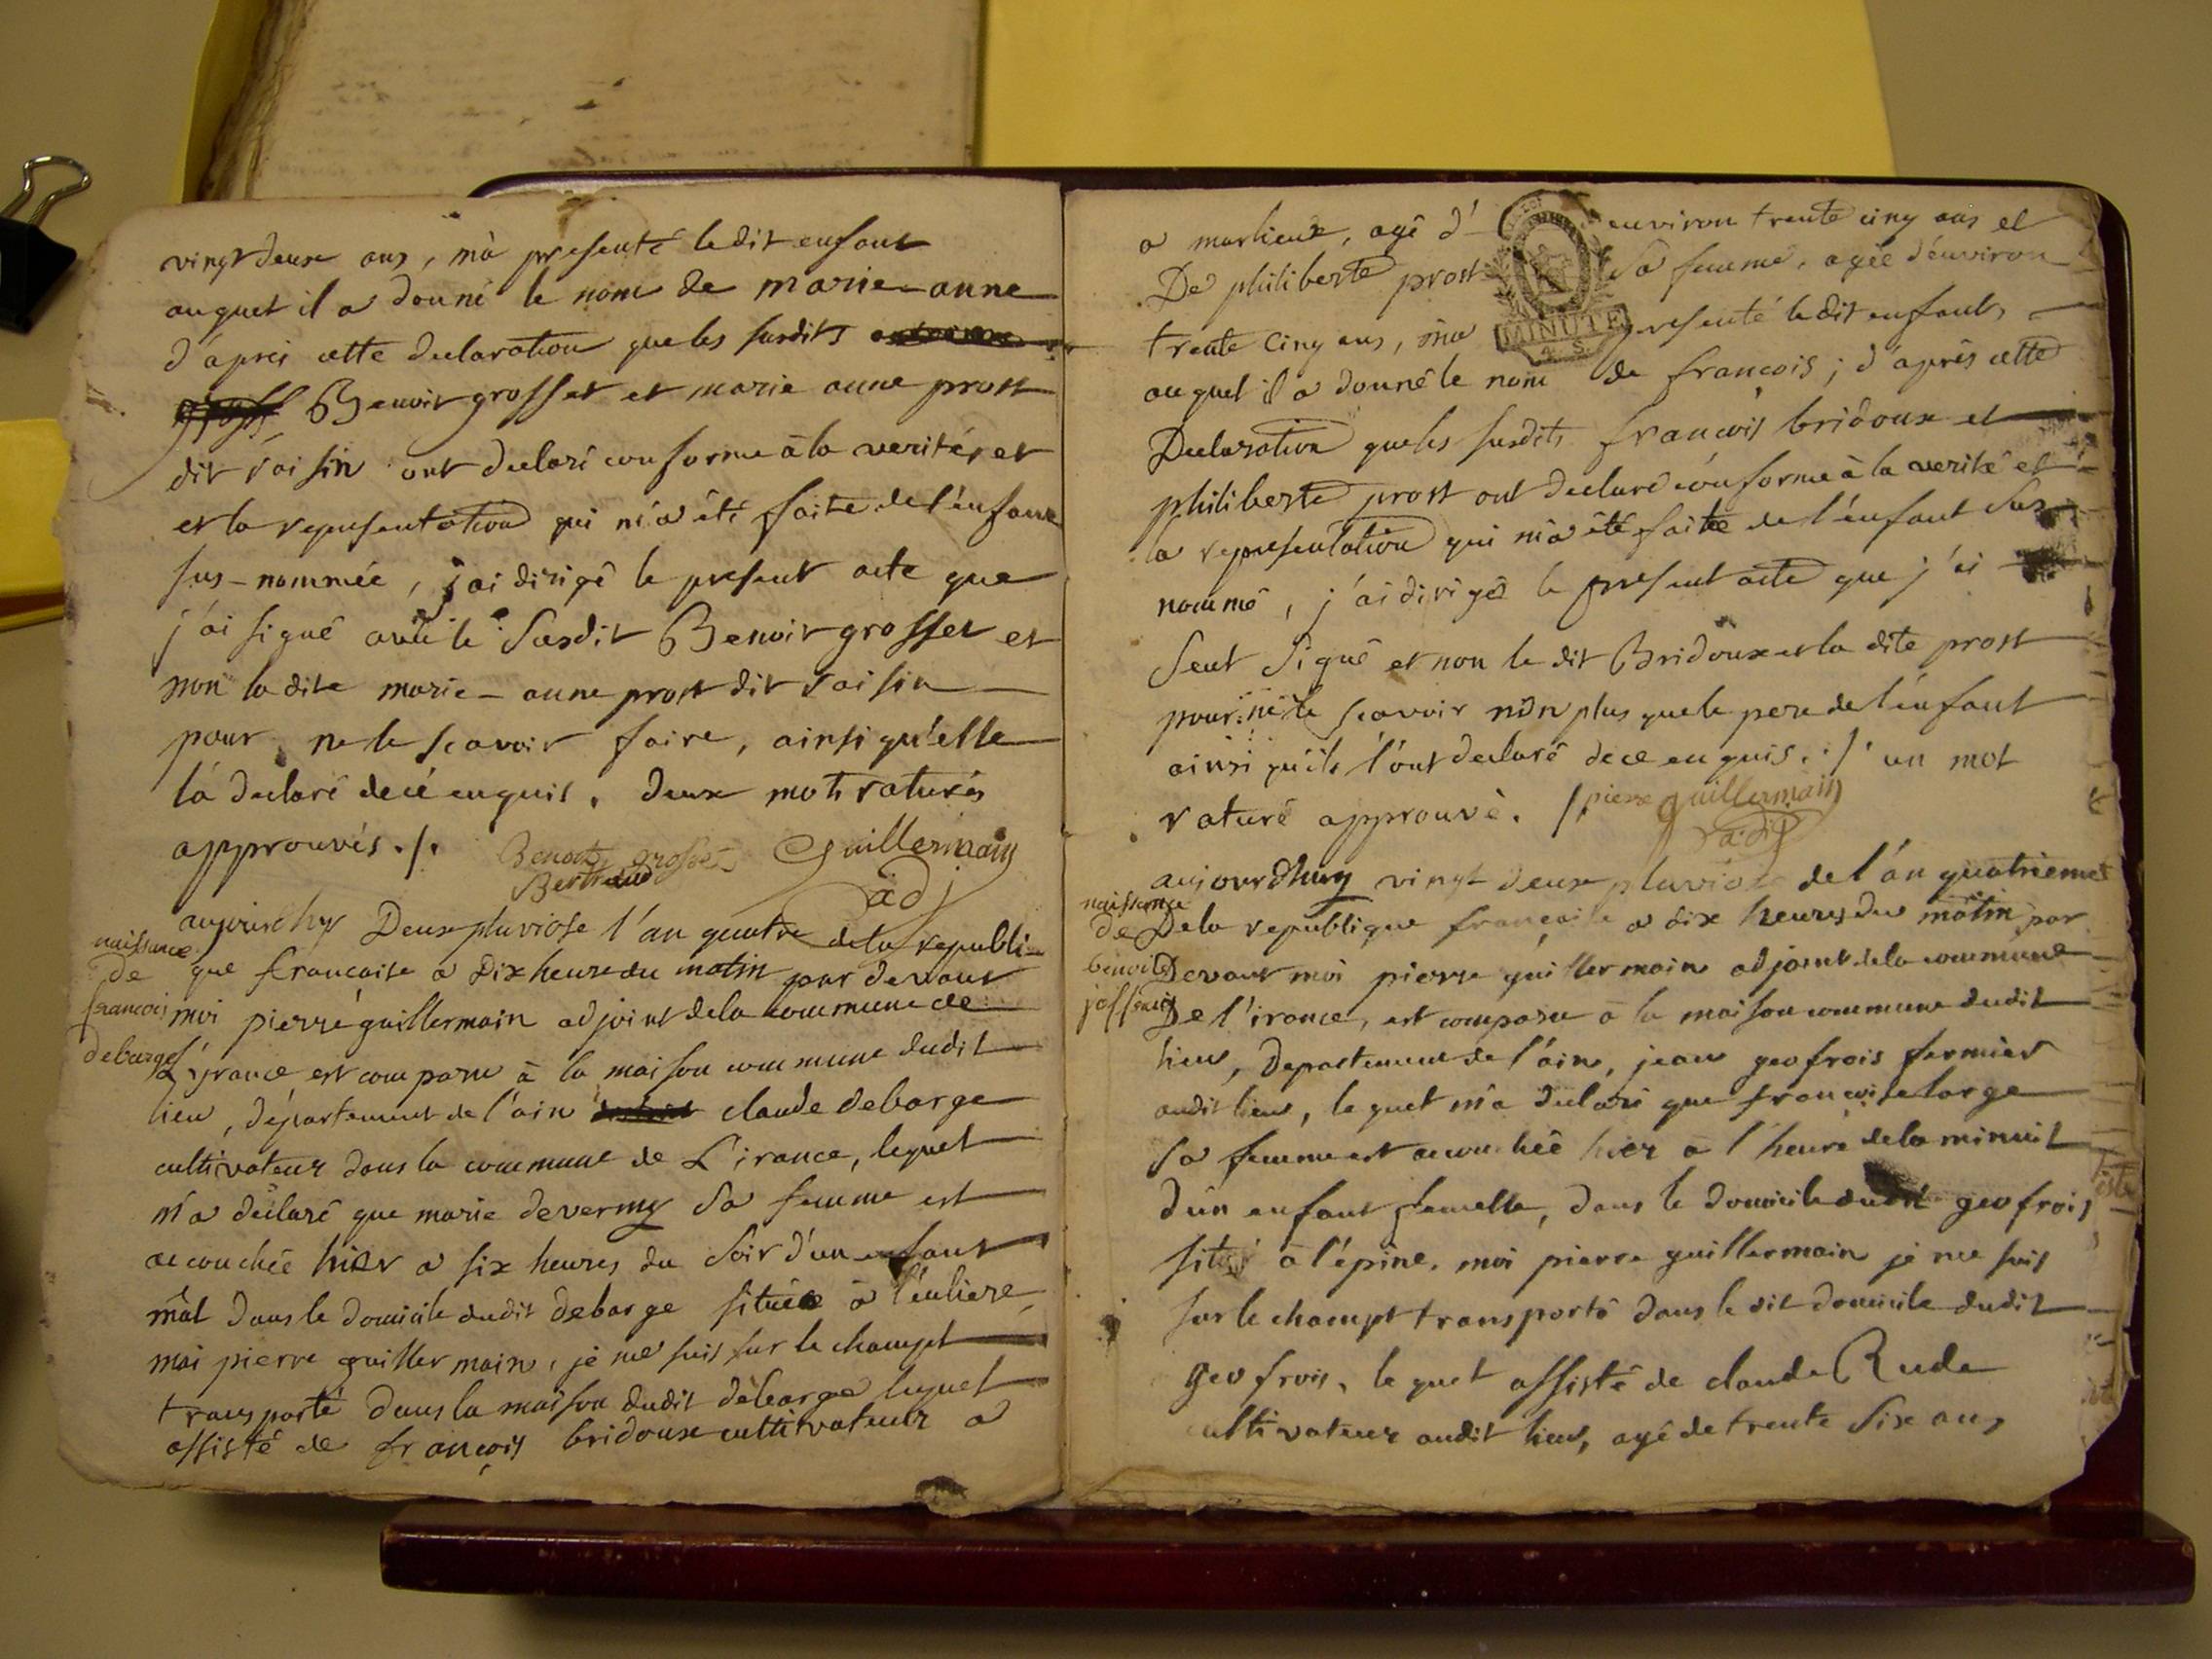 vingt deux ans, m'a presenté le dit enfant
auquel il a donné le nom de marie-anne
d'après cette declaration que les susdits
Benoit grosset et marie anne prost
dit raisin ont declaré conforme à la verité, et
et la representation qui m'a été faite de l'enfant
sus-nommée, j'ai dirigé le present acte que
j'ai signé avec le Susdit Benoit grosset et
non la dite marie-anne prost dit raisin
pour ne le scavoir faire, ainsi qu'elle
l'a declaré de cé enquis. deux mots raturés
approuvés ./.
Benoit grosset Guillermain
Bertraud adj
naissance
de
francois
debarge
aujourdhy Deux pluviose l'an quatre de la republi-
que francaise a Dix heure du matin par devant
moi pierre guillermain adjoint de la commune de
L'irance est comparu à la maison commune dudit
lieu, département de l'ain claude debarge
cultivateur dans la commune de L'irance, lequel
m'a déclaré que marie devermy Sa femme est
acouchée hier a six heures du Soir d'un enfant
mâl dans le domicile dudit debarge située à l'éuliere
moi pierre guillermain, je me suis sur le champt
transporté dans la maison dudit debarge lequel
assisté de françois bridoux cultivateur a
a marlieux, agé d'environ trente cinq ans et
De philiberte prost Sa femme, agée d'environ
trente cinq ans, m'a presenté le dit enfant,
auquel il a donné le nom de françois; d'après cette
Declaration que les susdits françois bridoux et
philiberte prost ont declaré conforme à la verité et
la representation qui m'a été faite de l'enfant Sus
nommé, j'ai dirigé le present acte que j'ai
Seul Signé et non le dit Bridoux et la dite prost
pour ne le scavoir non plus que le pere de l'enfant
ainsi qu'ils l'ont declaré de ce enquis. ./. un mot
raturé approuvé. /. pierre guillermain
adj
MINUTE
4 S.
naissance
de
benoite
joffrais
aujourdhuy vingt deux pluviose de l'an quatrieme
De la republique française a dix heures du matin par
Devant moi pierre guillermain adjoint de la commune
De l'irance, est comparu à la maison commune dudit
lieu, Departement de l'ain, jean geofrois fermier
audit lieu, lequel m'a declaré que françoise large
Sa femme est acouchée hier a l'heure de la minuit
d'un enfant femelle, dans le domicile dudit geofrois
situé à l'épine. moi pierre guillermain je me suis
sur le champt transporté dans le dit domicile dudit
geofrois, lequel assisté de claude Rude
cultivateur audit lieu, agé de trente Six ans